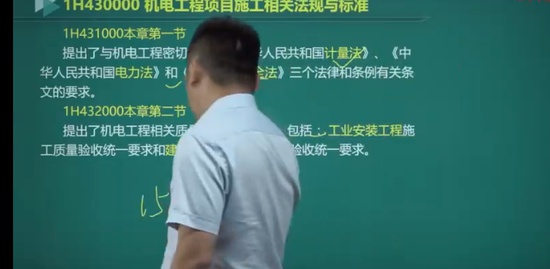 1H430000 机电工程项目施工相关法规与标准
1H431000本章第一节
提出了与机电工程密切 华人民共和国计量法》、《中
华人民共和国电力法》和《 全法》三个法律和条例有关条
文的要求。
1H432000本章第二节
提出了机电工程相关质 包括：工业安装工程施
工质量验收统一要求和建 验收统一要求。
15